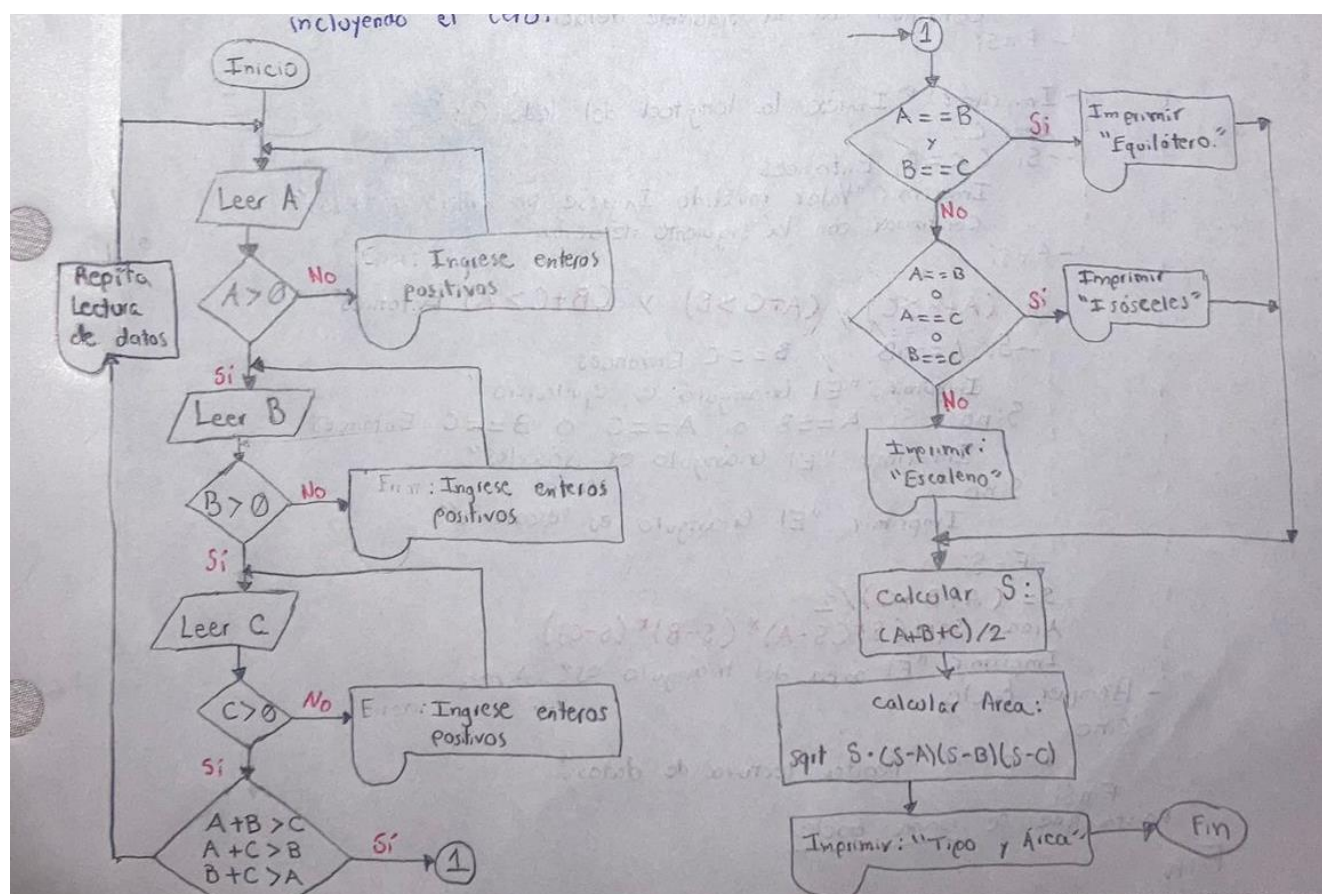 incluyendo el
Inicio
Leer A
A>0
No
Ingrese enteros
positivos
Repita
Lectura
de datos
Sí
Leer B
B>0
No
Ingrese enteros
positivos
Sí
Leer C
C>0
No
Ingrese enteros
positivos
Sí
A+B>C
A+C>B
B+C>A
Sí
1
1
A==B
y
B==C
Sí
Imprimir
"Equilátero."
No
A==B
o
A==C
o
B==C
Sí
Imprimir
"Isósceles"
No
Imprimir:
"Escaleno"
Calcular S:
(A+B+C)/2
calcular Area:
sqrt S·(S-A)(S-B)(S-C)
Imprimir: "Tipo y Área"
Fin